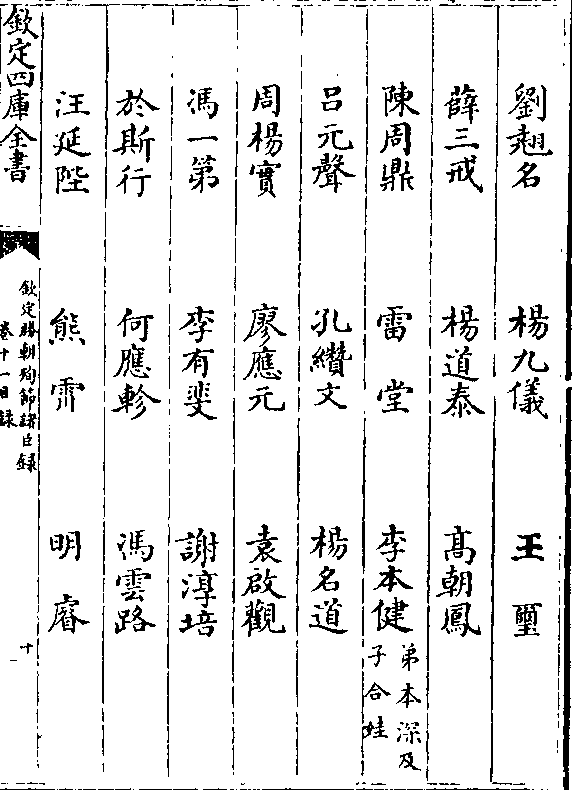 劉翹名　楊九儀　王璽
薛三戒　楊道泰　高朝鳳
陳周鼎　雷堂　李本健弟本深及子合娃
呂元聲　孔纘文　楊名道
周楊實　廖應元　袁啟觀
馮一第　李有斐　謝淳培
於斯行　何應軫　馮雲路
汪延陛　熊霽　明睿
欽定四庫全書
欽定勝朝殉節諸臣錄
卷十一目錄
十